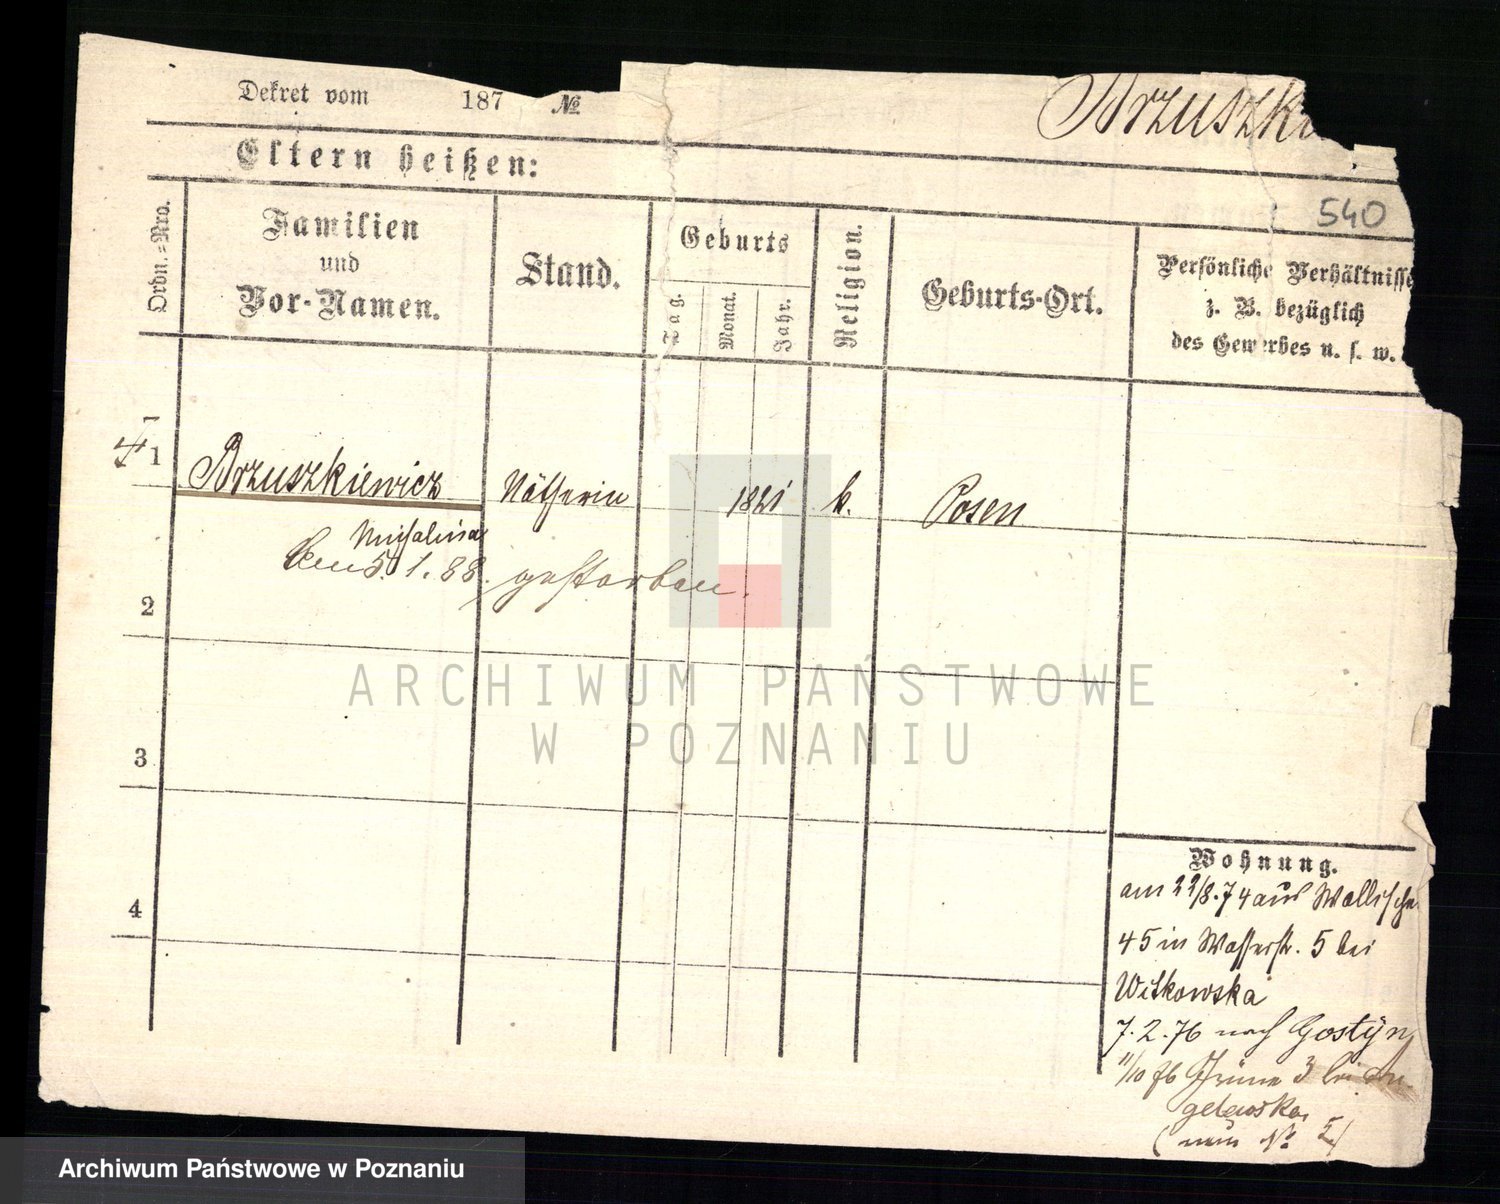 Dekret vom 187 №
Brzuszki
Eltern heißen:
540
Ordn.=Nro.
Familien
und
Vor-Namen.
Stand.
Geburts
Tag.
Monat.
Jahr.
Religion.
Geburts-Ort.
Persönliche Verhältnisse
z. B. bezüglich
des Gewerbes u. s. w.
1 Brzuszkiewicz Nätherin 1821 k. Posen
Michalina
den 5. 1. 88. gestorben.
2
3
4
ARCHIWUM PAŃSTWOWE
W POZNANIU
Wohnung.
am 22/8. 74 aus Wallische
45 in Wasserstr. 5 bei
Witkowska
7. 2. 76 nach Gostÿn
11/10 76 Grüne 3 bei
gelewska
(nun № 5)
Archiwum Państwowe w Poznaniu